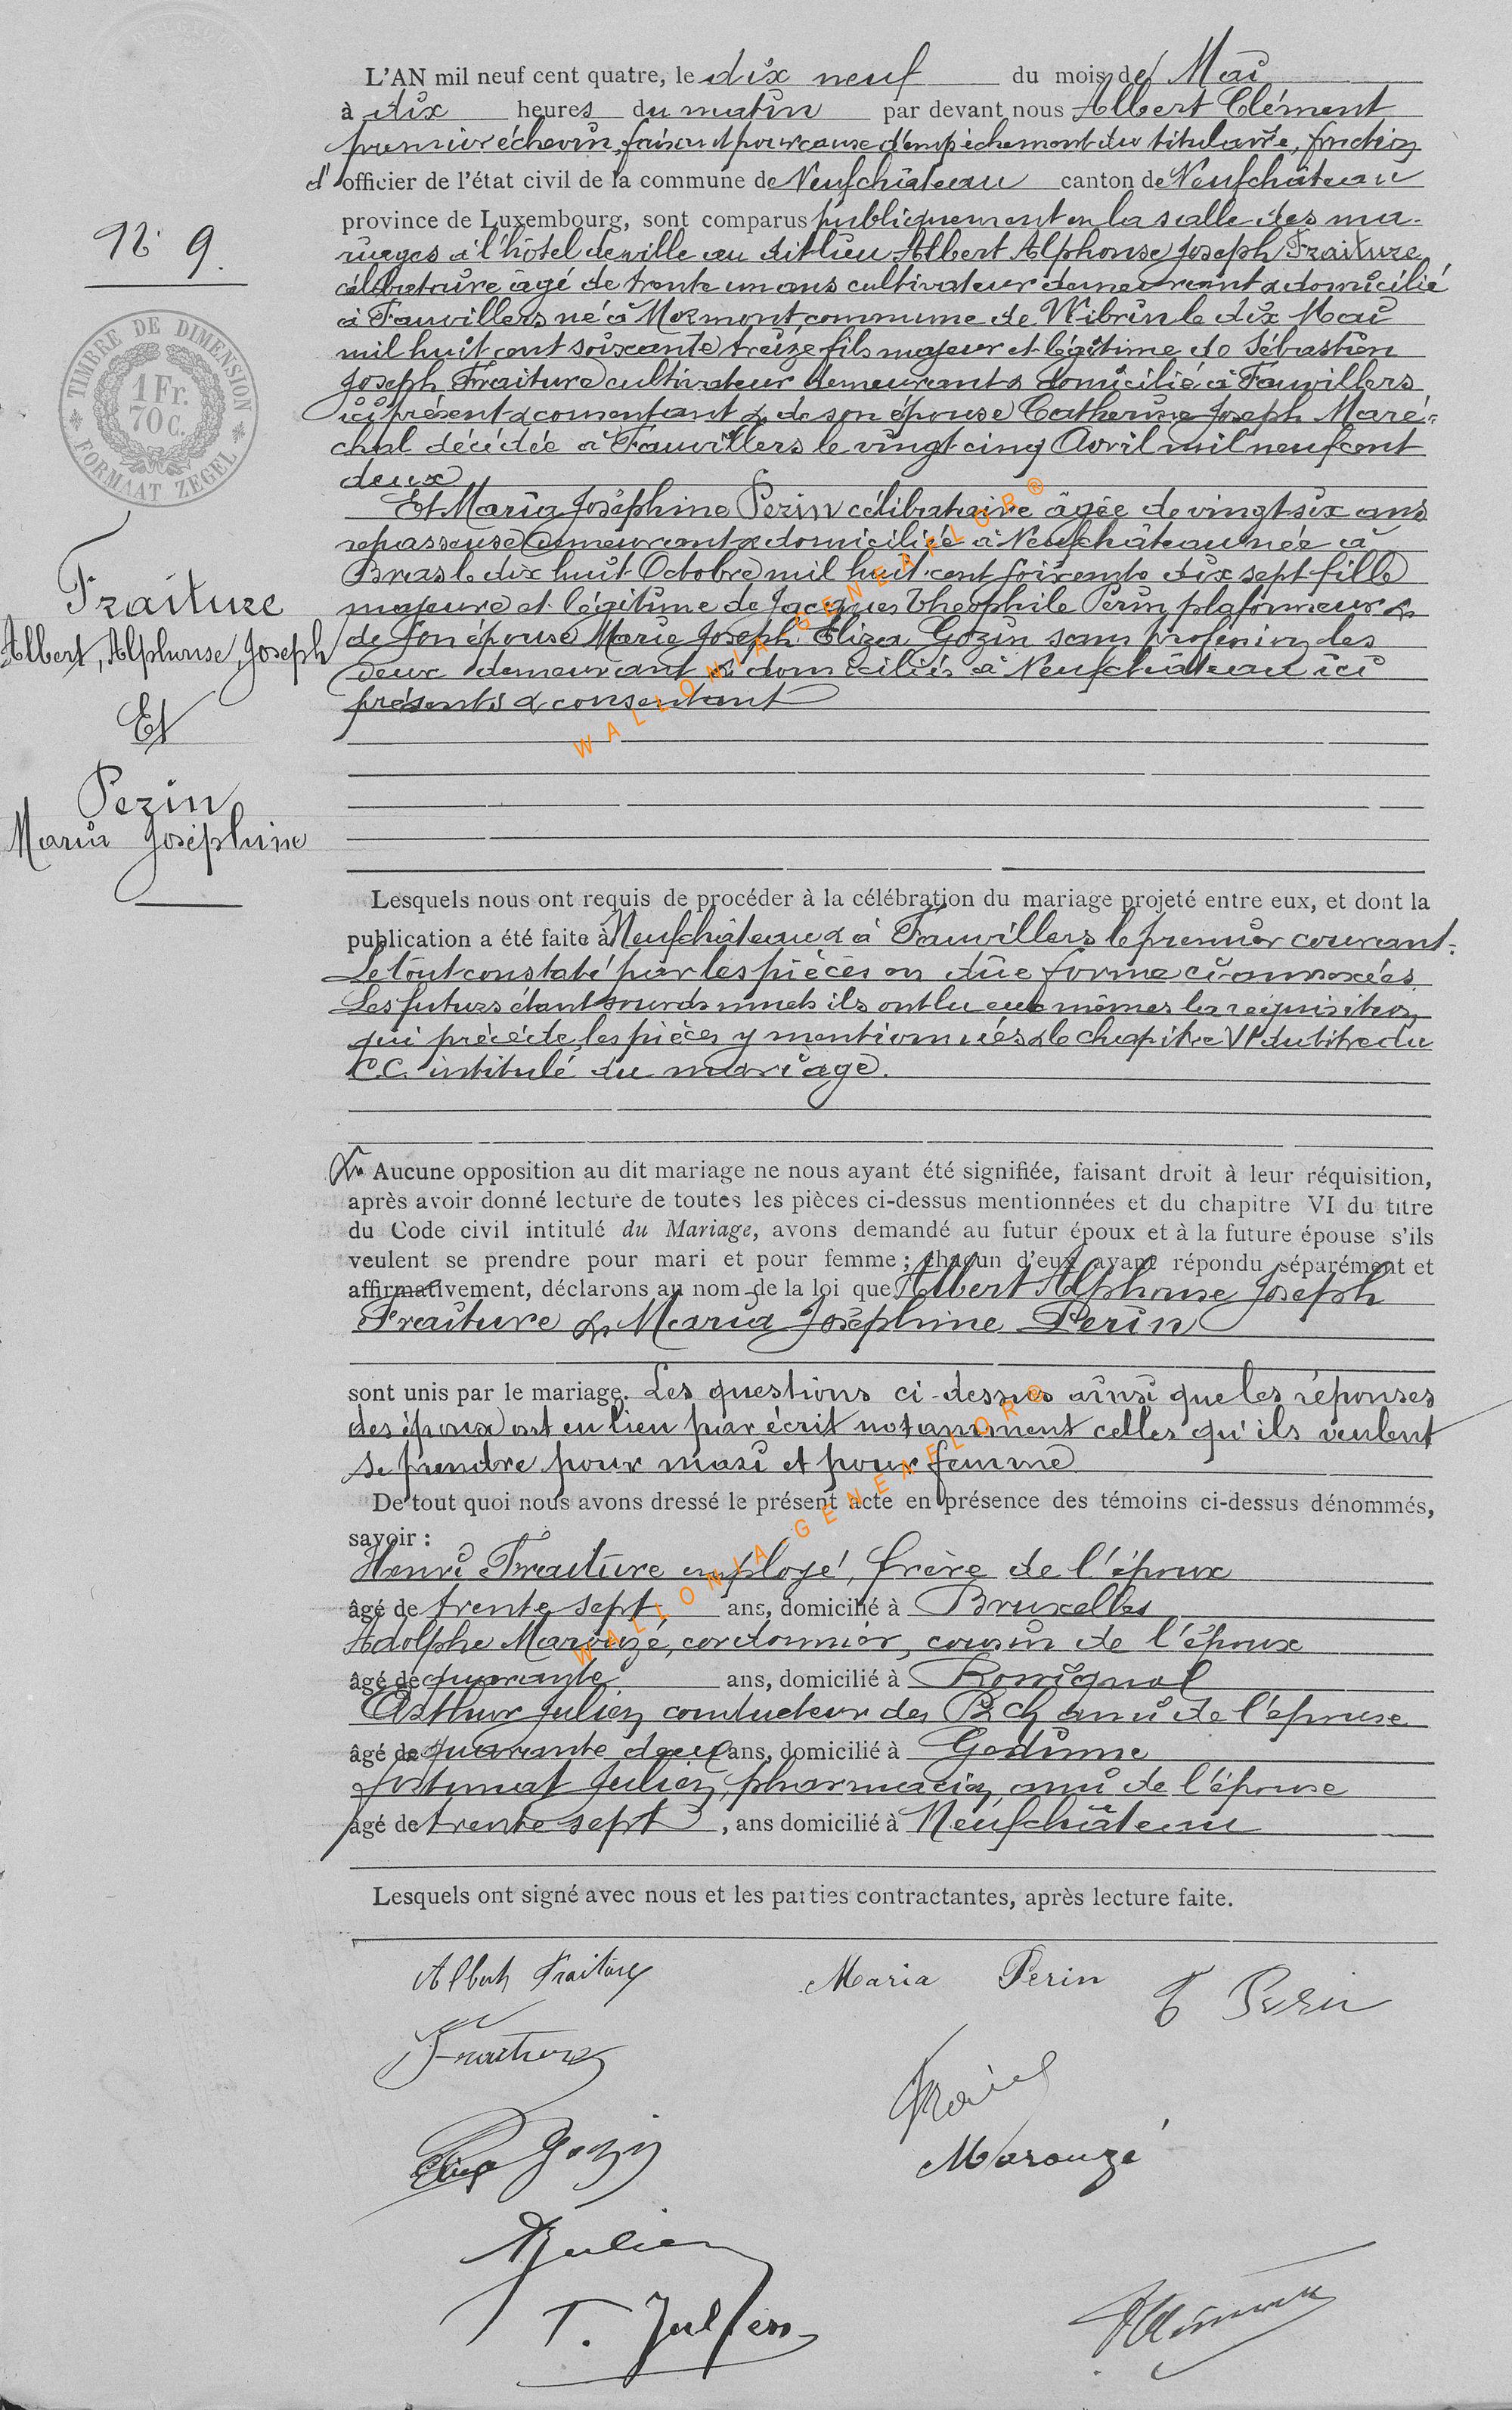 L'AN mil neuf cent quatre, le dix neuf du mois de Mai
à dix heures du matin par devant nous Albert Clément
premier échevin, faisant pour cause d'empêchement du titulaire, fonction
d'officier de l'état civil de la commune de Neufchâteau canton de Neufchâteau
province de Luxembourg, sont comparus publiquement en la salle des ma-
riages à l'hôtel de ville au dit lieu Albert Alphonse Joseph Fraiture
célibataire âgé de trente un ans cultivateur demeurant & domicilié
à Fauvillers né à Mormont, commune de Wibrin le dix Mai
mil huit cent soixante treize fils majeur et légitime de Sébastien
Joseph Fraiture cultivateur demeurant & domicilié à Fauvillers
ici présent & consentant & de son épouse Catherine Joseph Maré-
chal décédée à Fauvillers le vingt cinq Avril mil neuf cent
deux
Et Maria Joséphine Perin célibataire âgée de vingt six ans
repasseuse demeurant & domiciliée à Neufchâteau née à
Bras le dix huit Octobre mil huit cent soixante dix sept fille
majeure et légitime de Jacques Théophile Perin, plafonneur &
de son épouse Marie Joseph Eliza Gozin sans profession les
deux demeurant & domiciliés à Neufchâteau ici
présents & consentant
N° 9.
TIMBRE DE DIMENSION
1 Fr.
70 C.
FORMAAT ZEGEL
Fraiture
Albert, Alphonse, Joseph
Et
Perin
Maria Joséphine
WALLONIA-GENEAFLOR®
Lesquels nous ont requis de procéder à la célébration du mariage projeté entre eux, et dont la
publication a été faite à Neufchâteau & à Fauvillers le premier courant.
Le tout constaté par les pièces en dûe forme ci-annexées.
Les futurs étant sourds muets ils ont lu eux mêmes la réquisition
qui précède, les pièces y mentionnées & le chapitre VI du titre du
C.C. intitulé du mariage.
Aucune opposition au dit mariage ne nous ayant été signifiée, faisant droit à leur réquisition,
après avoir donné lecture de toutes les pièces ci-dessus mentionnées et du chapitre VI du titre
du Code civil intitulé du Mariage, avons demandé au futur époux et à la future épouse s'ils
veulent se prendre pour mari et pour femme ; chacun d'eux ayant répondu séparément et
affirmativement, déclarons au nom de la loi que Albert Alphonse Joseph
Fraiture & Maria Joséphine Perin
sont unis par le mariage. Les questions ci-dessus ainsi que les réponses
des époux ont eu lieu par écrit notamment celles qu'ils veulent
se prendre pour mari et pour femme
De tout quoi nous avons dressé le présent acte en présence des témoins ci-dessus dénommés,
savoir :
Henri Fraiture employé, frère de l'époux
âgé de trente sept ans, domicilié à Bruxelles
Adolphe Marouzé, cordonnier, cousin de l'époux
âgé de quarante ans, domicilié à Rossignol
Arthur Julien conducteur des P. & Ch. ami de l'épouse
âgé de quarante deux ans, domicilié à Gedinne
Fortunat Julien, pharmacien, ami de l'épouse
âgé de trente sept, ans domicilié à Neufchâteau
WALLONIA-GENEAFLOR®
Lesquels ont signé avec nous et les parties contractantes, après lecture faite.
Albert Fraiture Maria Perin T Perin
Fraiture
Eliza Gozin Marouzé
AJulien
F. Julien
AClément